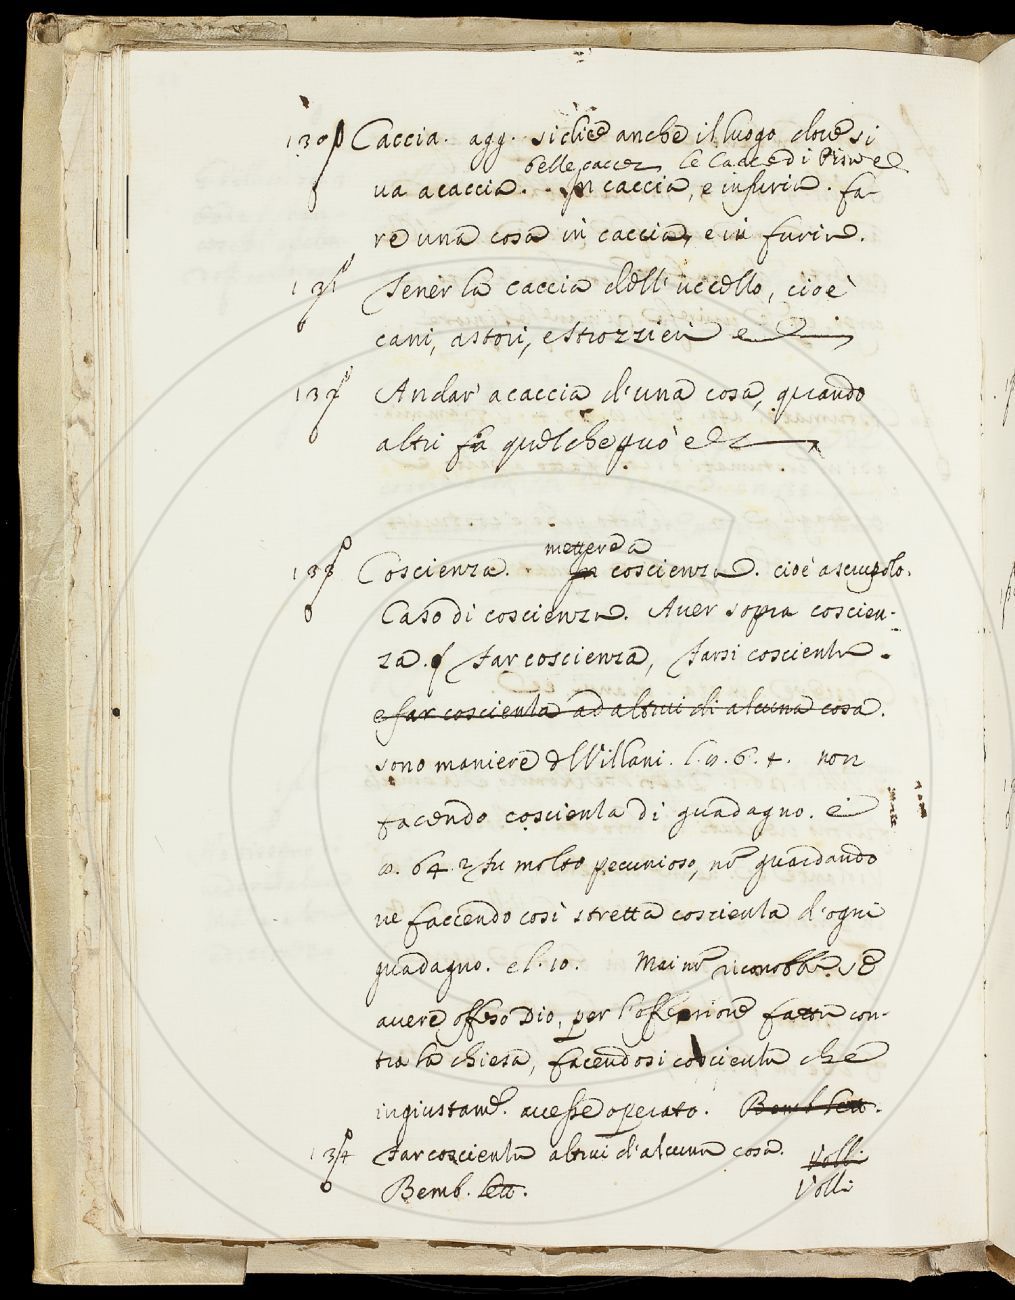 130 Caccia. agg. si dice anche il luogo doue si
belle cacce le Cacce di Pisa e
ua a caccia. In caccia, e in furia. fa-
re una cosa in caccia, e in furia.
131 Tener la caccia dell' uccello, cioè
cani, astori, e strozzieri e
132 Andar' a caccia d'una cosa, quando
altri fa quel che può e
mettere a
133 Coscienza. In coscienza. cioè a scrupolo.
Caso di coscienza. Auer sopra coscien-
za. far coscienza, farsi coscientia.
e far coscientia ad altrui di alcuna cosa.
sono maniere d Villani. l. 9. 6. 4. non
facendo coscientia di guadagno. e
9. 64. 2 fu molto pecunioso, nō guardando
ne faccendo così stretta coscientia d'ogni
guadagno. e l. 10. Mai nō riconobbe se
auere offeso Dio, per l'offensione fatta con-
tra la chiesa, facendosi coscientia che
ingiustamē. auesse operato. Bemb. lett.
134 far coscientia altrui d'alcuna cosa. Volli
Bemb. lett. Volli